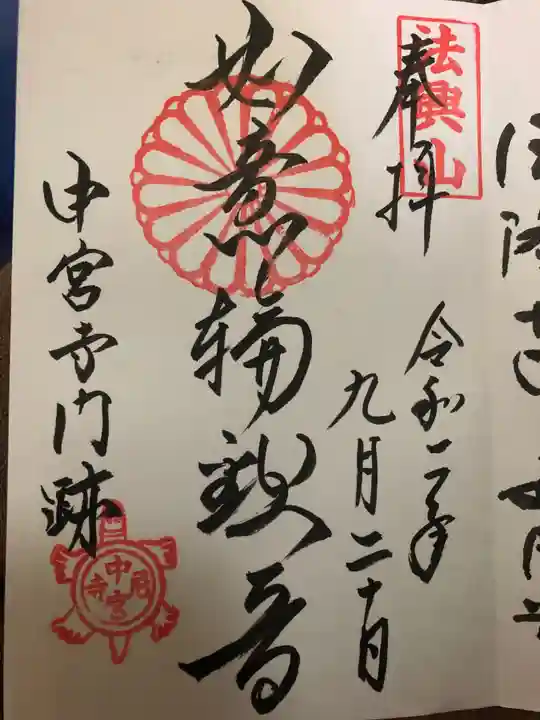 法興山
奉拝
令和二年
九月二十日
如意輪観音
中宮寺門跡
中宮寺